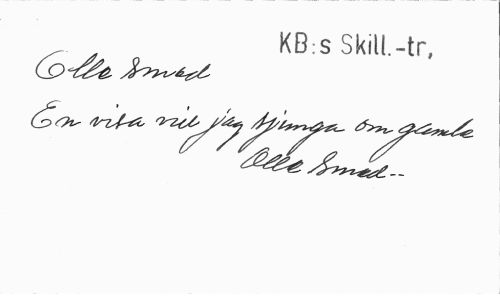 KB:s Skill.-tr,
Olle Smed
En visa vill jag sjunga om gamle
Olle Smed--